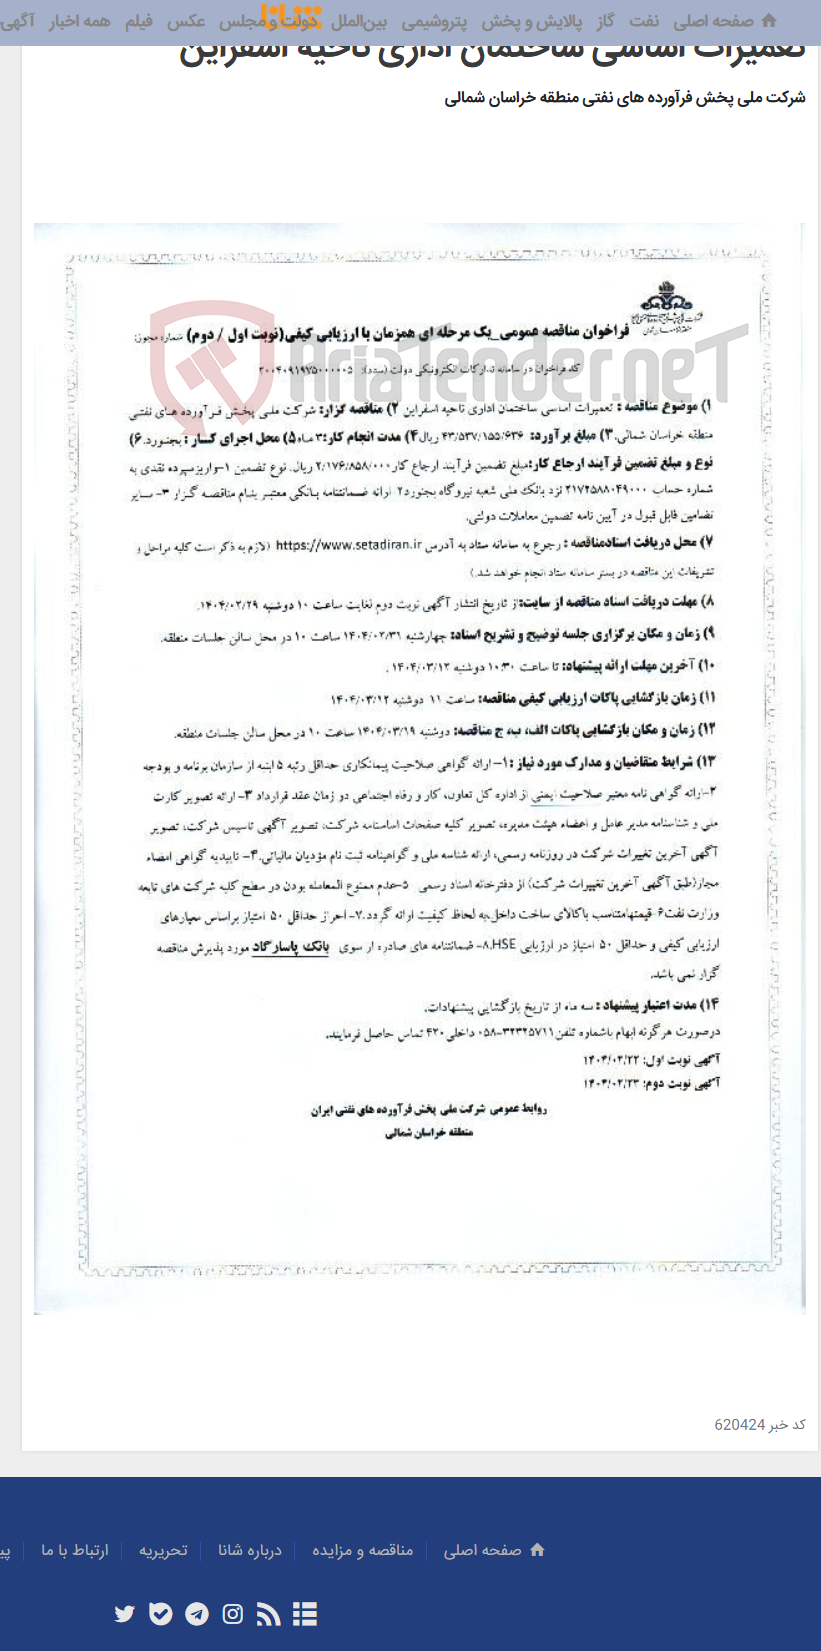 صفحه اصلی نفت گاز پالایش و پخش پتروشیمی بین‌الملل دولت و مجلس عکس فیلم همه اخبار آگهی
شانا
تعمیرات اساسی ساختمان اداری ناحیه اسفراین
شرکت ملی پخش فرآورده های نفتی منطقه خراسان شمالی
AriaTender.neT
فراخوان مناقصه عمومی_یک مرحله ای همزمان با ارزیابی کیفی(نوبت اول / دوم) شماره مجوز:
کد فراخوان در سامانه تدارکات الکترونیکی دولت (ستاد): ۲۰۰۴۰۹۱۹۷۵۰۰۰۰۰۵
۱) موضوع مناقصه : تعمیرات اساسی ساختمان اداری ناحیه اسفراین ۲) مناقصه گزار: شرکت ملی پخش فرآورده های نفتی
منطقه خراسان شمالی. ۳) مبلغ برآورد: ۴۳/۵۳۷/۱۵۵/۶۳۶ ریال ۴) مدت انجام کار: ۳ ماه ۵) محل اجرای کار : بجنورد. ۶)
نوع و مبلغ تضمین فرآیند ارجاع کار: مبلغ تضمین فرآیند ارجاع کار ۲/۱۷۶/۸۵۸/۰۰۰ ریال. نوع تضمین ۱-واریز سپرده نقدی به
شماره حساب ۲۱۷۲۵۸۸۰۴۹۰۰۰ نزد بانک ملی شعبه نیروگاه بجنورد ۲ ارائه ضمانتنامه بانکی معتبر بنام مناقصه گزار ۳- سایر
تضامین قابل قبول در آیین نامه تضمین معاملات دولتی.
۷) محل دریافت اسناد مناقصه : رجوع به سامانه ستاد به آدرس https://www.setadiran.ir (لازم به ذکر است کلیه مراحل و
تشریفات این مناقصه در بستر سامانه ستاد انجام خواهد شد.)
۸) مهلت دریافت اسناد مناقصه از سایت: از تاریخ انتشار آگهی نوبت دوم لغایت ساعت ۱۰ دوشنبه ۱۴۰۴/۰۲/۲۹.
۹) زمان و مکان برگزاری جلسه توضیح و تشریح اسناد: چهارشنبه ۱۴۰۴/۰۲/۳۱ ساعت ۱۰ در محل سالن جلسات منطقه.
۱۰) آخرین مهلت ارائه پیشنهاد: تا ساعت ۱۰:۳۰ دوشنبه ۱۴۰۴/۰۳/۱۲ .
۱۱) زمان بازگشایی پاکات ارزیابی کیفی مناقصه: ساعت ۱۱ دوشنبه ۱۴۰۴/۰۳/۱۲
۱۲) زمان و مکان بازگشایی پاکات الف، ب، ج مناقصه: دوشنبه ۱۴۰۴/۰۳/۱۹ ساعت ۱۰ در محل سالن جلسات منطقه.
۱۳) شرایط متقاضیان و مدارک مورد نیاز : ۱- ارائه گواهی صلاحیت پیمانکاری حداقل رتبه ۵ ابنیه از سازمان برنامه و بودجه
۲-ارائه گواهی نامه معتبر صلاحیت ایمنی از اداره کل تعاون، کار و رفاه اجتماعی در زمان عقد قرارداد ۳- ارائه تصویر کارت
ملی و شناسنامه مدیر عامل و اعضاء هیئت مدیره، تصویر کلیه صفحات اساسنامه شرکت، تصویر آگهی تاسیس شرکت، تصویر
آگهی آخرین تغییرات شرکت در روزنامه رسمی، ارائه شناسه ملی و گواهینامه ثبت نام مؤدیان مالیاتی. ۴- تاییدیه گواهی امضاء
مجاز(طبق آگهی آخرین تغییرات شرکت) از دفترخانه اسناد رسمی ۵-عدم ممنوع المعامله بودن در سطح کلیه شرکت های تابعه
وزارت نفت ۶-قیمتها متناسب با کالای ساخت داخل به لحاظ کیفیت ارائه گردد. ۷- احراز حداقل ۵۰ امتیاز براساس معیارهای
ارزیابی کیفی و حداقل ۵۰ امتیاز در ارزیابی HSE. ۸- ضمانتنامه های صادره از سوی بانک پاسارگاد مورد پذیرش مناقصه
گزار نمی باشد.
۱۴) مدت اعتبار پیشنهاد : سه ماه از تاریخ بازگشایی پیشنهادات.
درصورت هرگونه ابهام باشماره تلفن ۳۲۳۲۵۷۱۱-۰۵۸ داخلی ۴۲۰ تماس حاصل فرمایند.
آگهی نوبت اول: ۱۴۰۴/۰۲/۲۲
آگهی نوبت دوم: ۱۴۰۴/۰۲/۲۳
روابط عمومی شرکت ملی پخش فرآورده های نفتی ایران
منطقه خراسان شمالی
کد خبر 620424
صفحه اصلی مناقصه و مزایده درباره شانا تحریریه ارتباط با ما